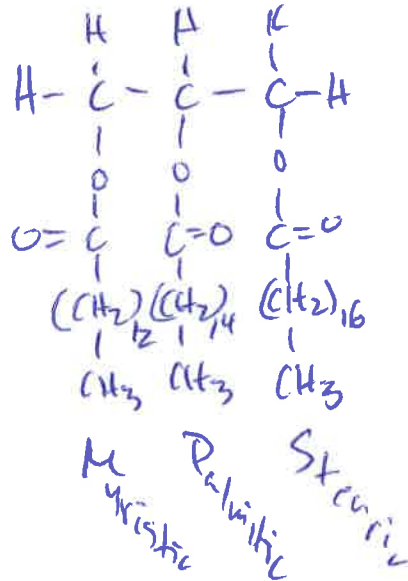 H H H
H - C - C - C - H
O O O
O = C C = O C = O
(CH2)12 (CH2)14 (CH2)16
CH3 CH3 CH3
Myristic Palmitic Stearic